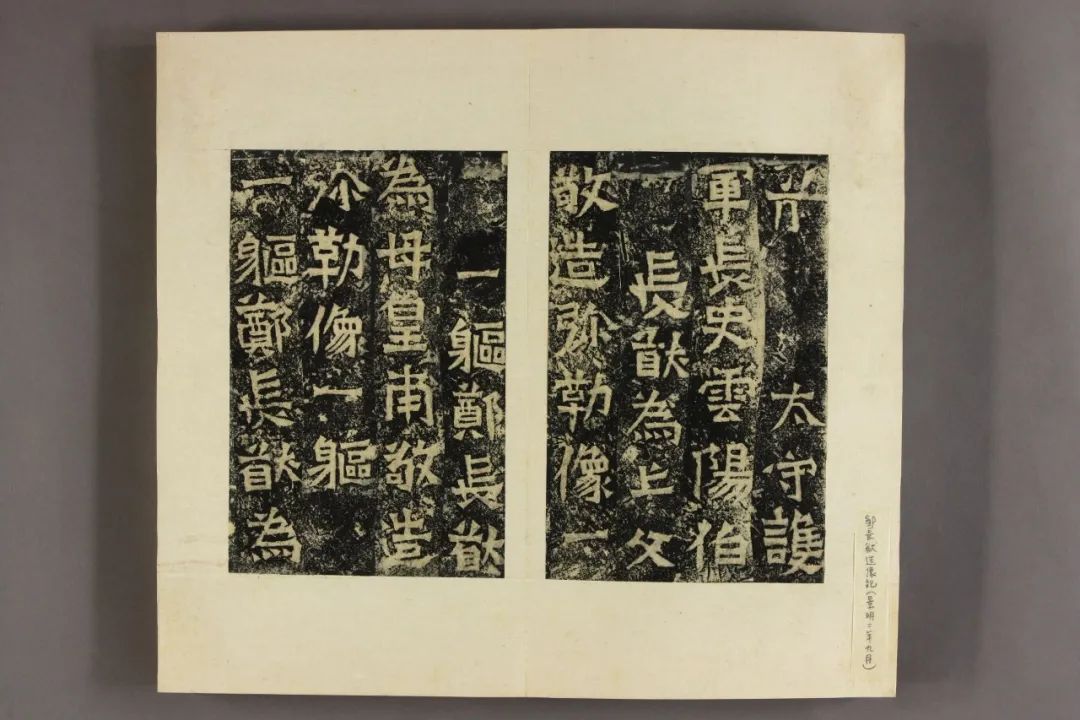 前 太守護
軍長史雲陽伯
長猷為亡父
敬造弥勒像一
一軀鄭長猷
為母皇甫敬造
弥勒像一軀
一軀鄭長猷為
鄭長猷造像記(景明二年九月)